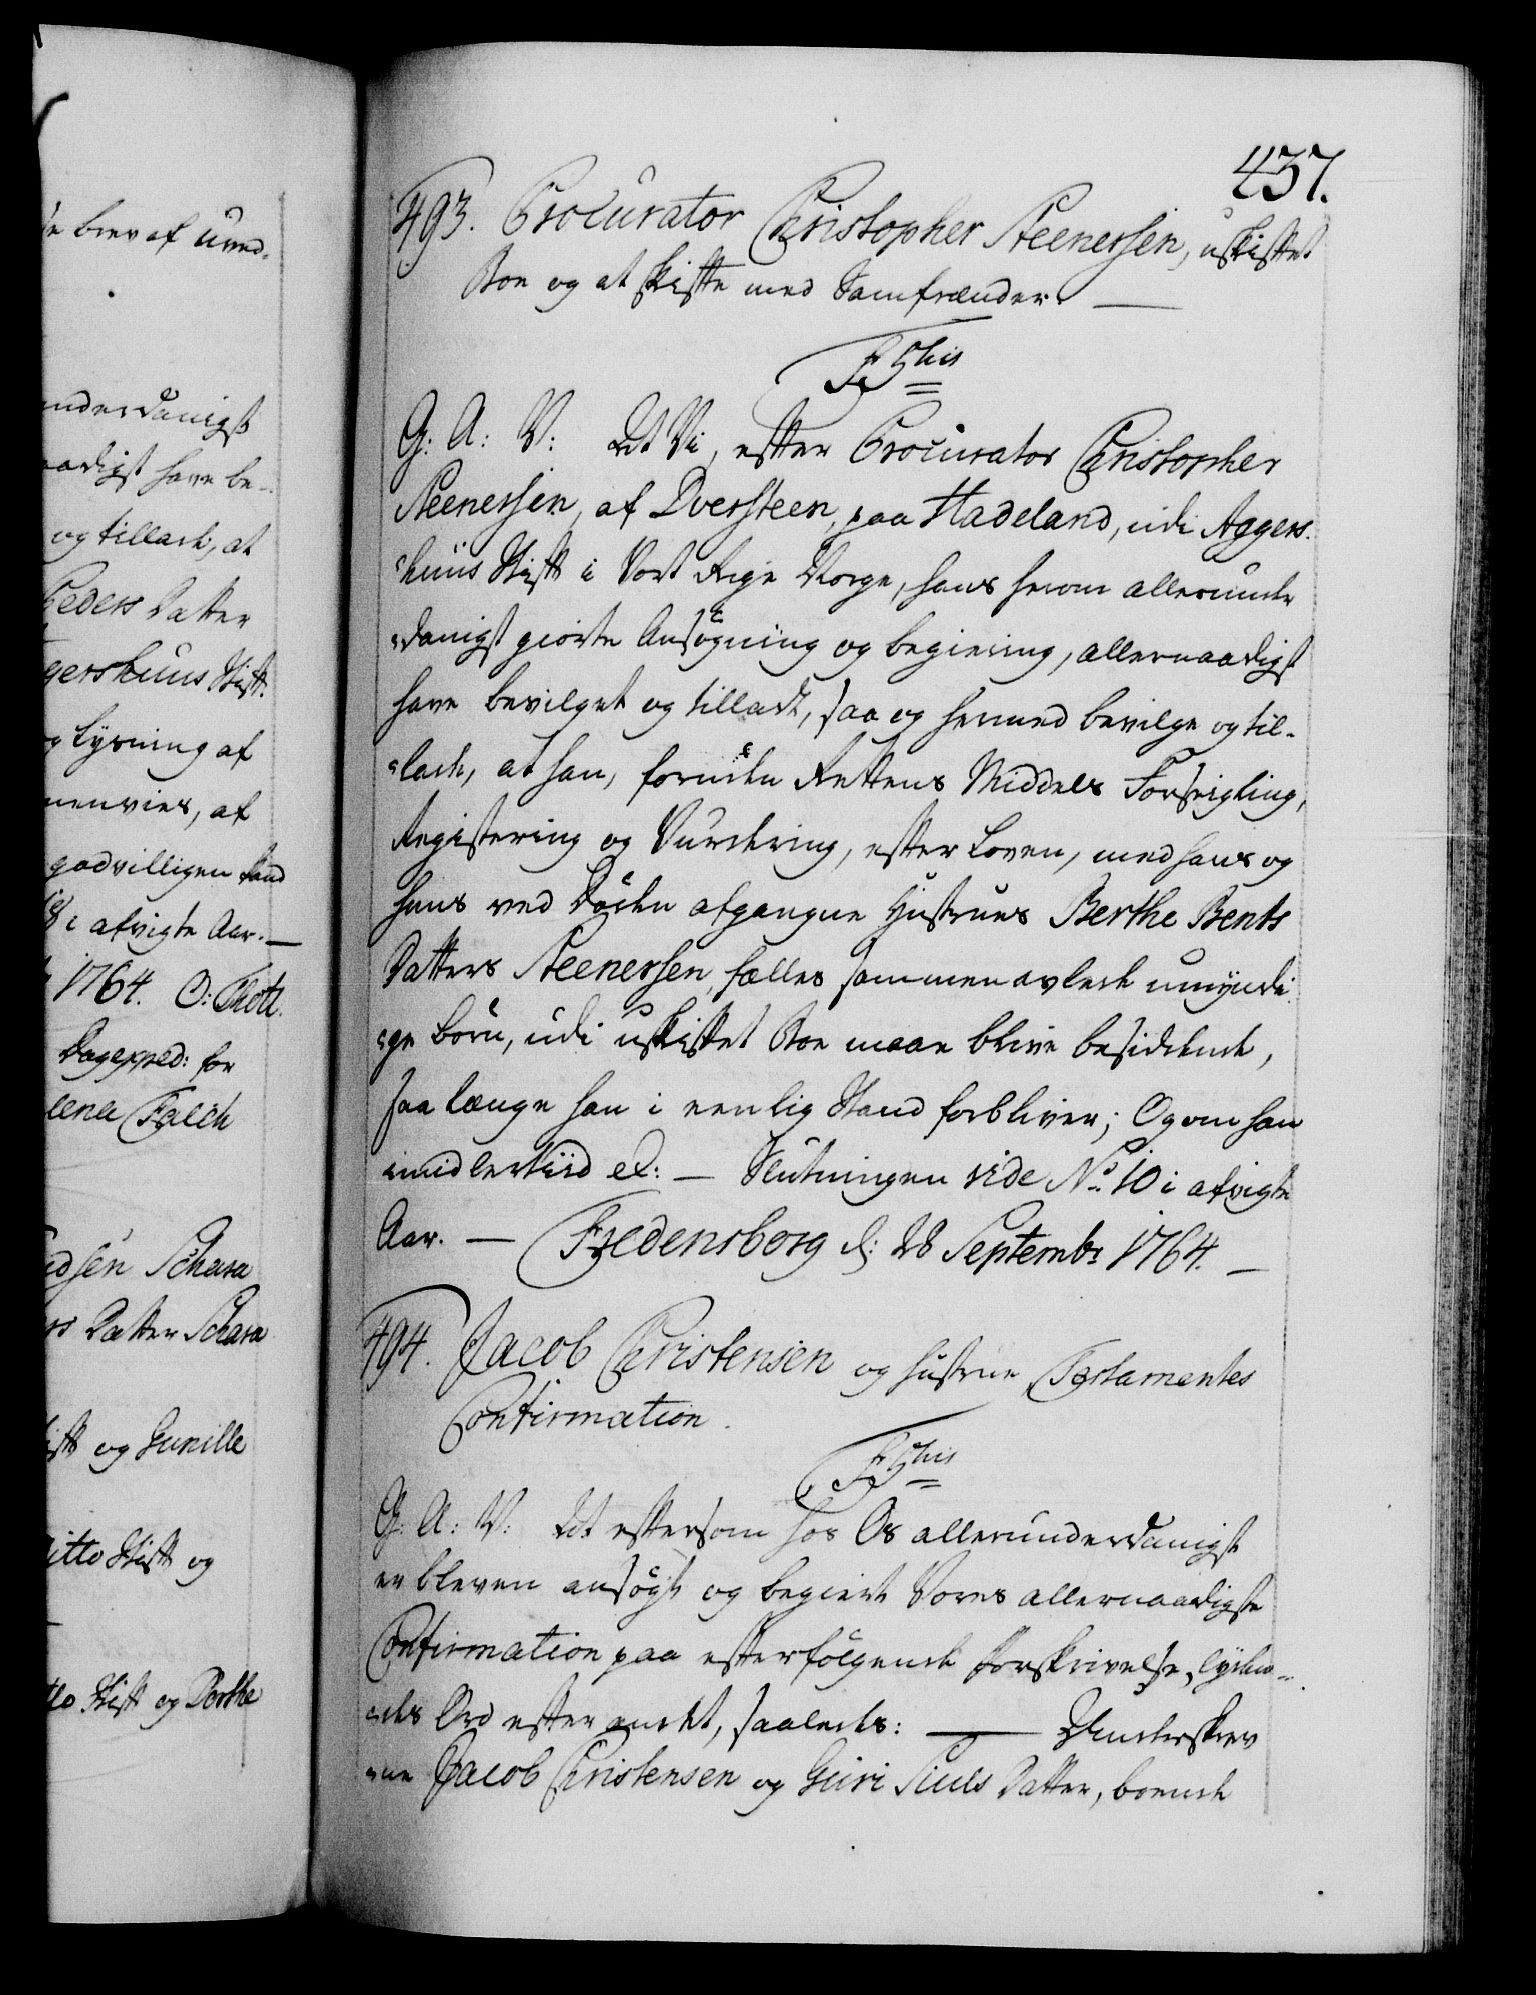 437.
e brev af Uved-
underdanigst
naadigst have be-
og tillade, at
Peders Datter
gershuus Stift
g Lysning af
menvies, af
godvilligen
i afvigte Aar. —
1764. O: Thott.
Dagexped: for
Falch
dsen Schara
rs Datter Schara
ift og Gunille
itto Stift og
tto Stift og Dorthe
493. Procurator Christopher Steenersen, uskiftet
Boe og at skifte med Samfrænder. —
F 5this
G: A: V: At Vi, efter Procurator Christopher
Steenersen, af Dversteen, paa Hadeland, udi Aggers-
huus Stift i Vort Rige Norge, hans herom allerunder-
danigst giorte Ansøgning og begiering, allernaadigst
have bevilget og tilladt, saa og hermed bevilge og til-
lade, at han, foruden Rettens Middels Forseigling,
Registering og Vurdering, efter Loven, med hans og
hans ved Døden afgangne Hustrues Berthe Bents
Datters Steenersen, fælles sammenavlede umyndi-
ge børn, udi uskiftet Boe maae blive besiddende,
saa længe han i eenlig Stand forbliver; Og om han
imidlertiid &: — Slutningen vide No 10 i afvigte
Aar. — Fredensborg d: 28 Septembr 1764. —
494. Jacob Christensen og hustrue Testamentes
Confirmation.
F 5this
G: A: V: At eftersom hos Os allerunderdanigst
er bleven ansøgt og begiert Vores allernaadigste
Confirmation paa efterfølgende forskrivelse, lyden-
des Ord efter andet, saaledes: — Underskrev
ne Jacob Christensen og Guri Siuls Datter, boende